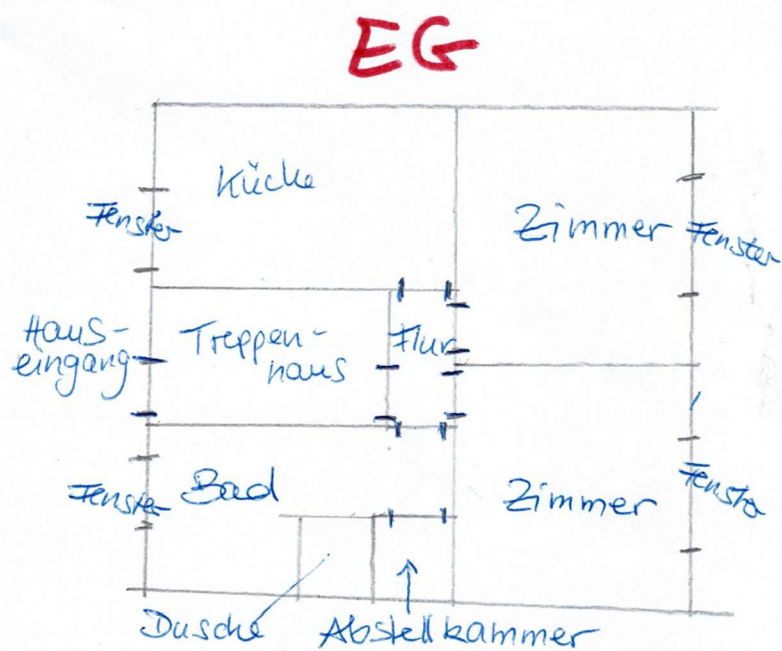 EG
Küche
Fenster
Zimmer
Fenster
Haus-
eingang
Treppen-
haus
Flur
Fenster
Bad
Zimmer
Fenster
Dusche
Abstellkammer